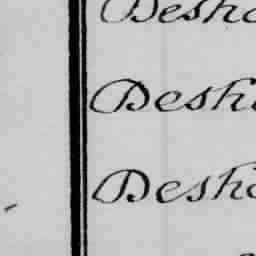 Desho
Desho
Desho